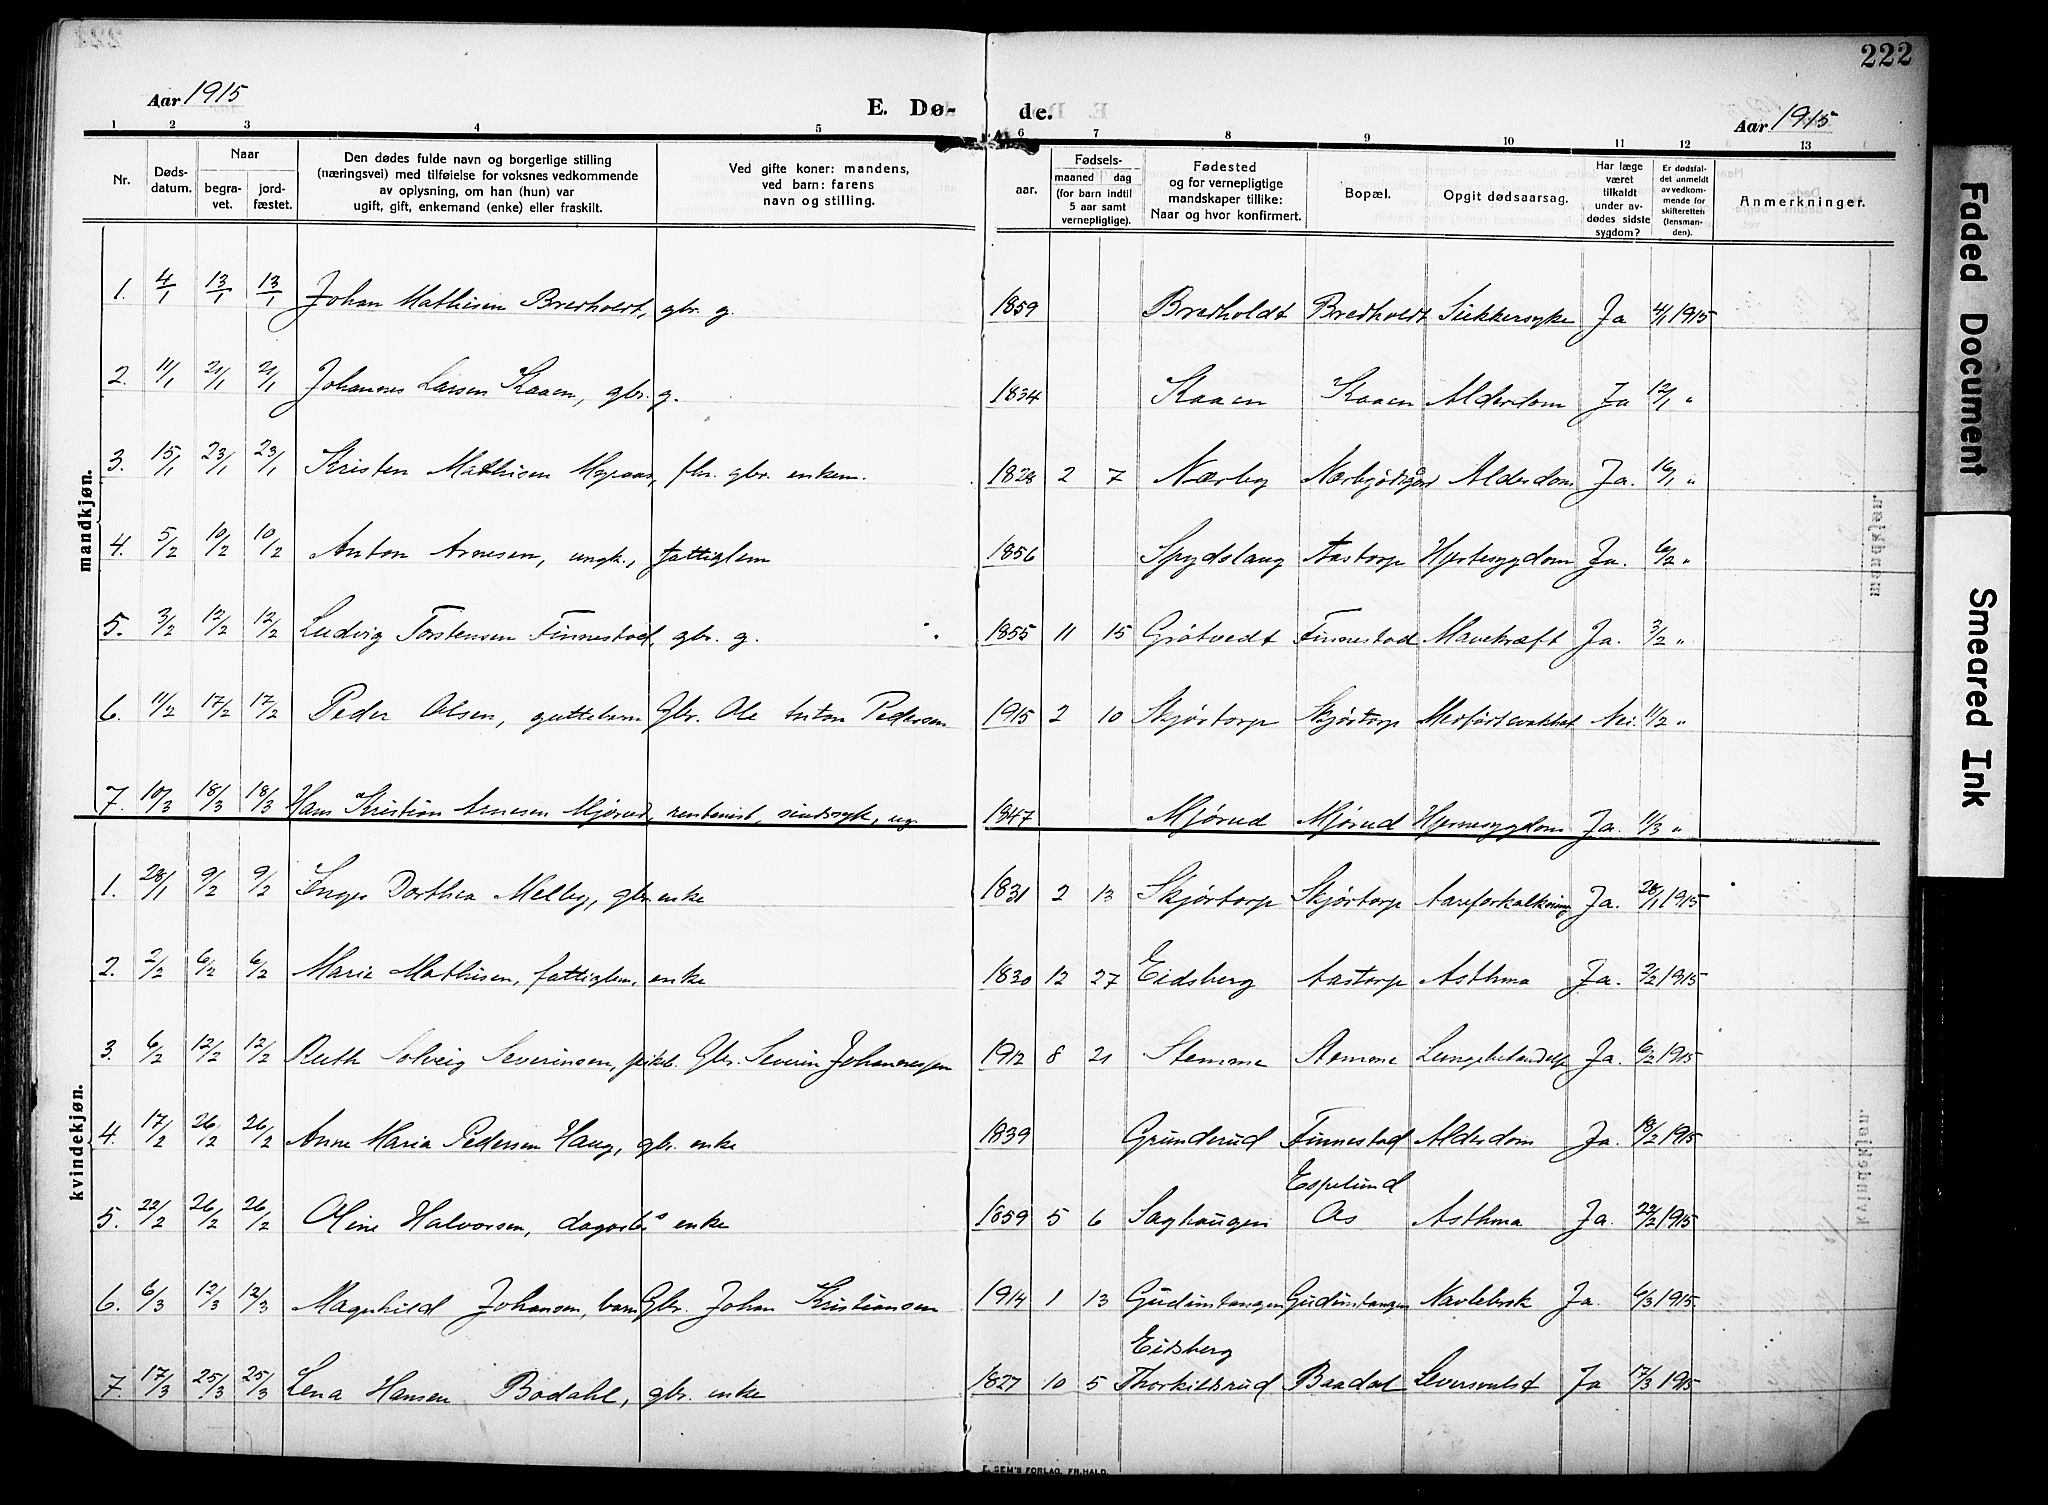 222
Aar 1915
E. Dø- de.
Aar 1915
1 2 3 4 5 6 7 8 9 10 11 12 13
Nr.
Døds-
datum.
Naar
begra-
vet.
jord-
fæstet.
Den dødes fulde navn og borgerlige stilling
(næringsvei) med tilføielse for voksnes vedkommende
av oplysning, om han (hun) var
ugift, gift, enkemand (enke) eller fraskilt.
Ved gifte koner: mandens,
ved barn: farens
navn og stilling.
Fødsels-
aar.
maaned dag
(for barn indtil
5 aar samt
vernepligtige).
Fødested
og for vernepligtige
mandskaper tillike:
Naar og hvor konfirmert.
Bopæl.
Opgit dødsaarsag.
Har læge
været
tilkaldt
under av-
dødes sidste
sygdom?
Er dødsfal-
det anmeldt
av vedkom-
mende for
skifteretten
(lensman-
den).
Anmerkninger.
mandkjøn.
1. 4/1 13/1 13/1 Johan Mathisen Bredholdt, gbr. g. 1859 Bredholdt Bredholdt Sukkersyke Ja 4/1 1915
2. 11/1 21/1 21/1 Johannes Larsen Kaaen, gbr. g. 1834 Kaaen Kaaen Alderdom Ja 12/1 "
3. 15/1 23/1 23/1 Kristen Mathisen fhv. gbr. enkem. 1828 2 7 Nærby Alderdom Ja. 16/1 "
4. 5/2 10/2 10/2 Anton Arnesen, ungk., fattiglem 1856 Spydslaug Aastorp Hjertesygdom Ja. 6/2 "
5. 3/2 12/2 12/2 Ludvig Torstensen Finnestad, gbr. g. 1855 11 15 Grøtvedt Finnestad Mavekræft Ja. 3/2 "
6. 11/2 17/2 17/2 Peder Olsen, guttebarn Gbr. Ole Anton Pedersen 1915 2 10 Skjørtorp Skjørtorp Medfødt svakhet Nei. 11/2 "
7. 10/3 18/3 18/3 Hans Kristian Arnesen Mjørud, rentenist, sindssyk, ug. 1847 Mjørud Mjørud Hjernesygdom Ja. 11/3 "
kvindekjøn.
1. 28/1 9/2 9/2 Inger Dorthea Melleby, gbr. enke 1831 2 13 Skjørtorp Skjørtorp Aareforkalkning Ja. 28/1 1915
2. 2/2 6/2 6/2 Maria Mathisen, fattiglem, enke 1830 12 27 Eidsberg Aastorp Asthma Ja. 2/2 1915
3. 6/2 12/2 12/2 Ruth Solveig Severinsen, pikeb. Gbr. Severin Johannessen 1912 8 21 Stemme Stemme Lungebetændelse Ja. 6/2 1915
4. 17/2 26/2 26/2 Anne Maria Pedersen Haug, gbr. enke 1839 Grunderud Finnestad Alderdom Ja. 18/2 1915
Espelund
5. 22/2 26/2 26/2 Oline Halvorsen, dagarb.s enke 1859 5 6 Saghaugen Os Asthma Ja 22/2 1915
6. 6/3 12/3 12/3 Magnhild Johansen, barn Gbr. Johan Kristiansen 1914 1 13 Gudimtangen Gudimtangen Navlebrok Ja. 6/3 1915.
Eidsberg
7. 17/3 25/3 25/3 Lena Hansen Bodahl, gbr. enke 1827 10 5 Thorkilsrud Baadal Leversvulst Ja 17/3 1915
E. SEM'S FORLAG, FR.HALD.
Faded Document
Smeared Ink